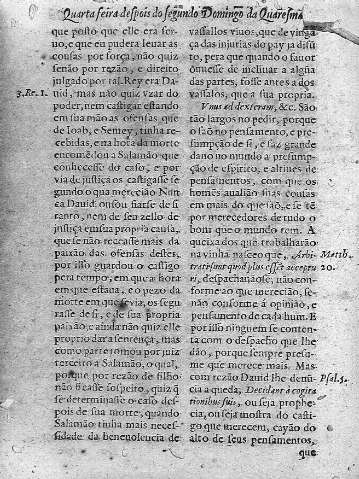 Quarta feira despois do segundo Domingo da Quaresma
que posto que elle era servo,
e que en pudera leuar as
cousas por força, não quiz
senão por razão, e direito
julgado por tal. Rey era Dauid,
mas não quiz vzar do
poder, nem castigar estando
em sua mão as ofensas que
de Ioab, e Semey, tinha recebidas,
e na hora da morte
encomẽdou a Salamão que
conhecesse do caso, e por
via de justiça os castigasse segundo
o que merecião Nunca
Dauid ousou fiarse de si
tanto, nem de seu zello de
justiça em sua propria causa,
que se não receasse mais da
paixão das ofensas destes,
por isso guardou o castigo
pera tempo, em que a hora
em que estaua, e o juizo da
morte em que se via, os segurasse
de si, e de sua propria
paixão, e ainda não quiz elle
proprio dar a sentença, mas
como parte tomou por juiz
terceiro a Salamão, o qual,
porque por rezão de filho
não ficasse sospeito, quiz q̃
se determinasse o caso despois
de sua morte, quando
Salamão tinha mais necessidade
da beneuolencia de
3. Re. 1.
vassallos viuos, que de vingãças
das injurias do pay ja disũto,
pera que quando o fauor
ouuesse de inclinar a algũa
das partes, fosse antes a dos
vassalos, que a sua propria.
Vnus ad dexteram, &c. São
tão largos no pedir, porque
o são no pensamento, e presumpção
de si, e faz grande
dano no mundo a presumpção
de espirito, e altiues de
pensamentos, com que os
homẽs aualião suas coutas
em mais do que são, e se tẽ
por merecedores de tudo o
bom que o mundo tem. A
queixa dos que trabalharão
na vinha naseo que, Arbitrati
sunt quod plus essent accepturi,
despachauãose, não conforme
ao que merecião, senão
conforme á opinião, e
pensamento de cada hum. E
por isso ninguem se contenta
com o despacho que lhe
dão, porque sempre presume
que merece mais. Mas
com rezão Dauid lhe denũcia
a queda, Decidant à cogitationibus
suis, ou seja prophecia,
ou seja mostra do castigo
que merecem, cayão do
alto de seus pensamentos,
que
Matth. 20.
Psal. 5.